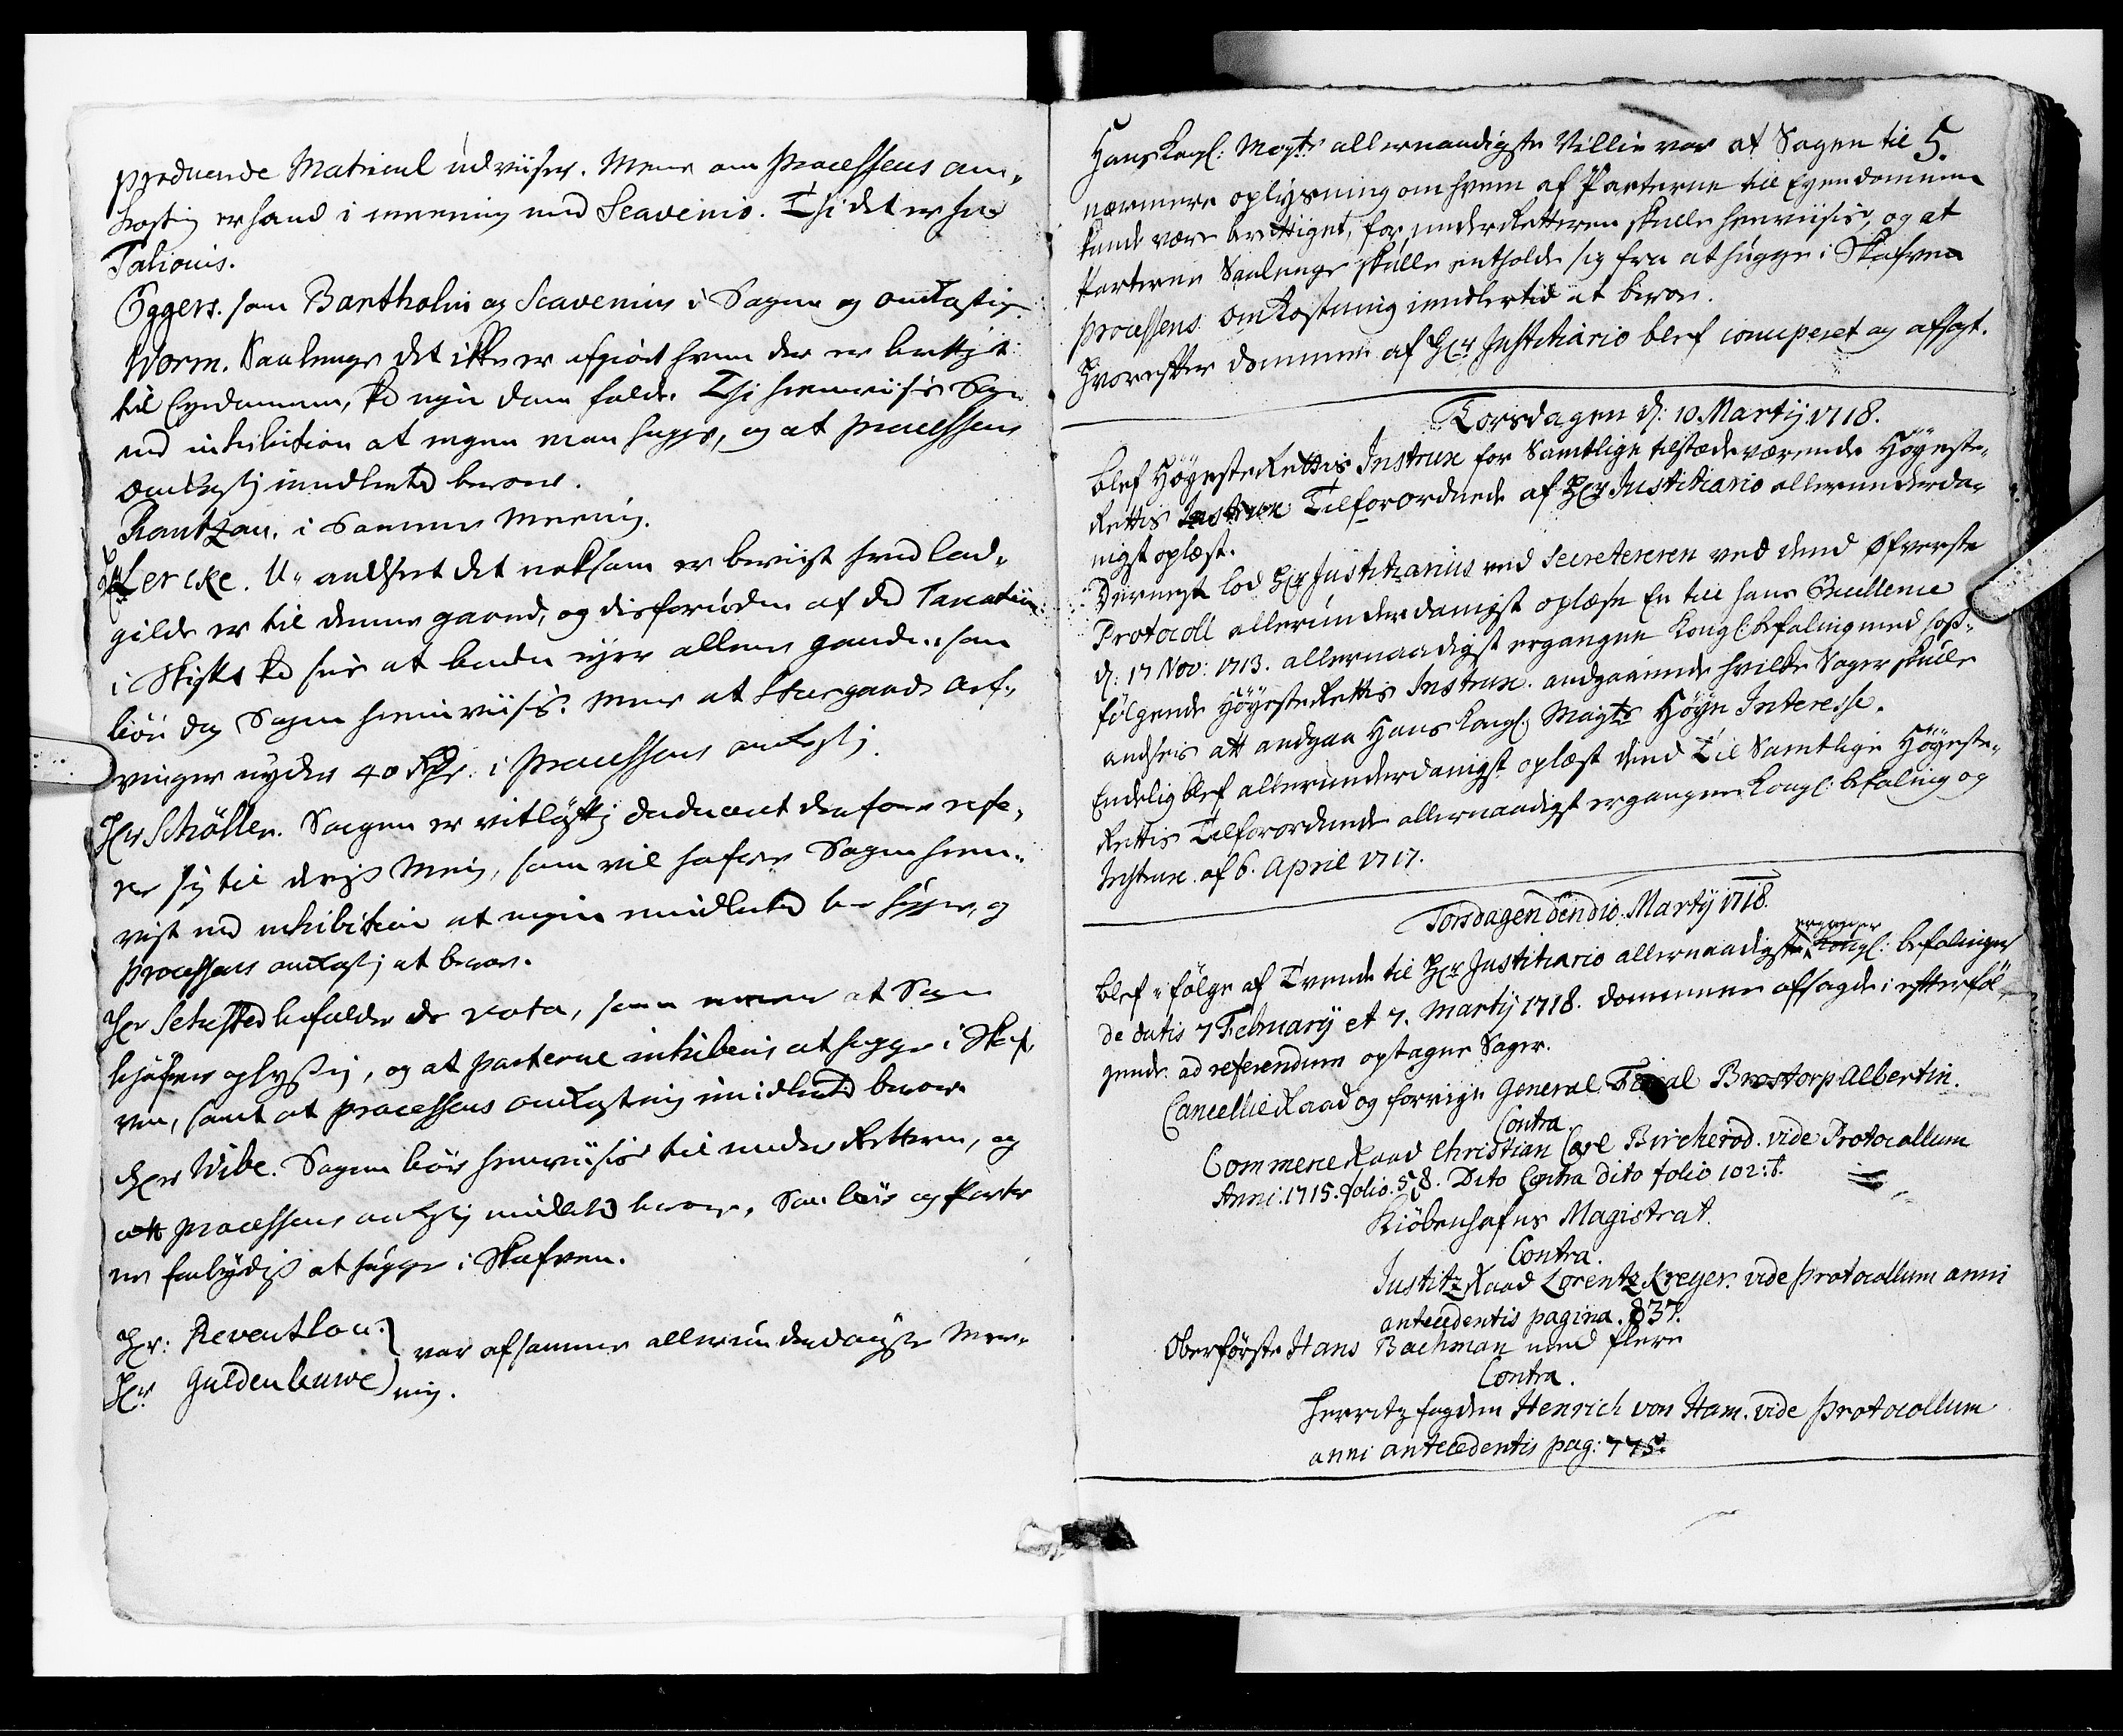 producerede Matricul udviiser. Mens om processens om„
kostning er hand i meening med Scavenio. Thi det er
Talionis.
Eggers. som Bartholin og Scavenius i Sagen og omkostning.
Worm. Saalenge det ikke er afgiort hvem der er berettiget
til Eyendommen, kand ingen dom falde. Thi henviisis Sagen
med inhibition at ingen maa hugge, og at processens
omkostning imidlertid beroer.
Rantzau. i samme Meening.
Hr Lercke. U-andseet det noksom er beviist hvad land„
gilde er til denne gaard, og
i Skiftet
bör dog Sagen henviisis. Mens at Steensgaards Arf„
vinger nyder 40 Rdr. i processens omkostning.
Hr Schöller. Sagen er vitløftig deduceret derfore refe„
rer sig til deris Meening, som vil hafve Sagen hen„
vist med inhibition at ingen imidlertid bør hugge, og
processens omkostning at beroe.
Hr Sehested befalder de vota, som meener at Sagen
behöfver oplysning, og at parterne inhiberis at hugge i Skof„
ven, samt at processens omkostning imidlertid beroer.
Hr Wibe. Sagen bör henviisis til under Retterne, og
att processens omkostning imidlertid beroer, Saa bör og Parter
ne forbydis at hugge i Skofven.
Hr: Reventlou.
Hr Guldenleuwe
var af samme allerunderdanigste Mee„
ning.
5.
Hans Kongl: Mayts allernaadigste Villie var at Sagen til
nærmere oplysning om hvem af Parterne til Eyendommen
kunde være berettiget, for underRetterne skulle henviisis, og at
Parterne Saalenge skulle entholde sig fra at hugge i Skofven
processens omkostning imidlertid at beroe.
Hvorefter dommen af Hr Justitiario blef conciperet og afsagt.
Torsdagen d: 10. Martij 1718.
blef HöyesteRettis Instrux for Samtlige tilstædeværende Höyeste„
Rettis Instrux Tilforordnede af Hr Justitiario allerunderda„
nigst oplæst.
Dernest lod Hr Justitiarius ved Secretereren ved dend Øfverste
Protocoll allerunderdanigst oplæse En till hans Excellence
d: 17 Nov: 1713. allernaadigst ergangne Kongl: befaling med hoß„
følgende HöyesteRettis Instrux. andgaaende hvilke Sager skulle
andseis att andgaa Hans Kongl: Mayts Höye Interesse.
Endelig blef allerunderdanigst oplæst dend Til Samtlige Höyeste„
Rettis Tilforordnede allernaadigst ergangen Kongl: befaling og
Instrux. af 6. April 1717.
Torsdagen den dio. Martij 1718.
blef i følge af Tvende til Hr Justitiario allernaadigste erganger Kongl: befalinger
de datis 7 Februarij et 7. Martij 1718. dommene afsagde i efterføl„
gende ad referendum optagne Sager.
CancellieRaad og forrige General Fiscal Brostorp Albertin.
Contra
CommerceRaad Christian Carl Bircherod. vide Protocollum
Anni. 1715. folio. 58. Dito Contra dito folio 102: t.
Kiöbenhafns Magistrat.
Contra.
JustitzRaad Lorentz Kreyer. vide protocollum anni
antecedentis pagina. 837.
Oberførste Hans Bachman med flere
Contra.
Herritzfogden Henrich von Ham. vide protocollum
anni antecedentis pag: 775.